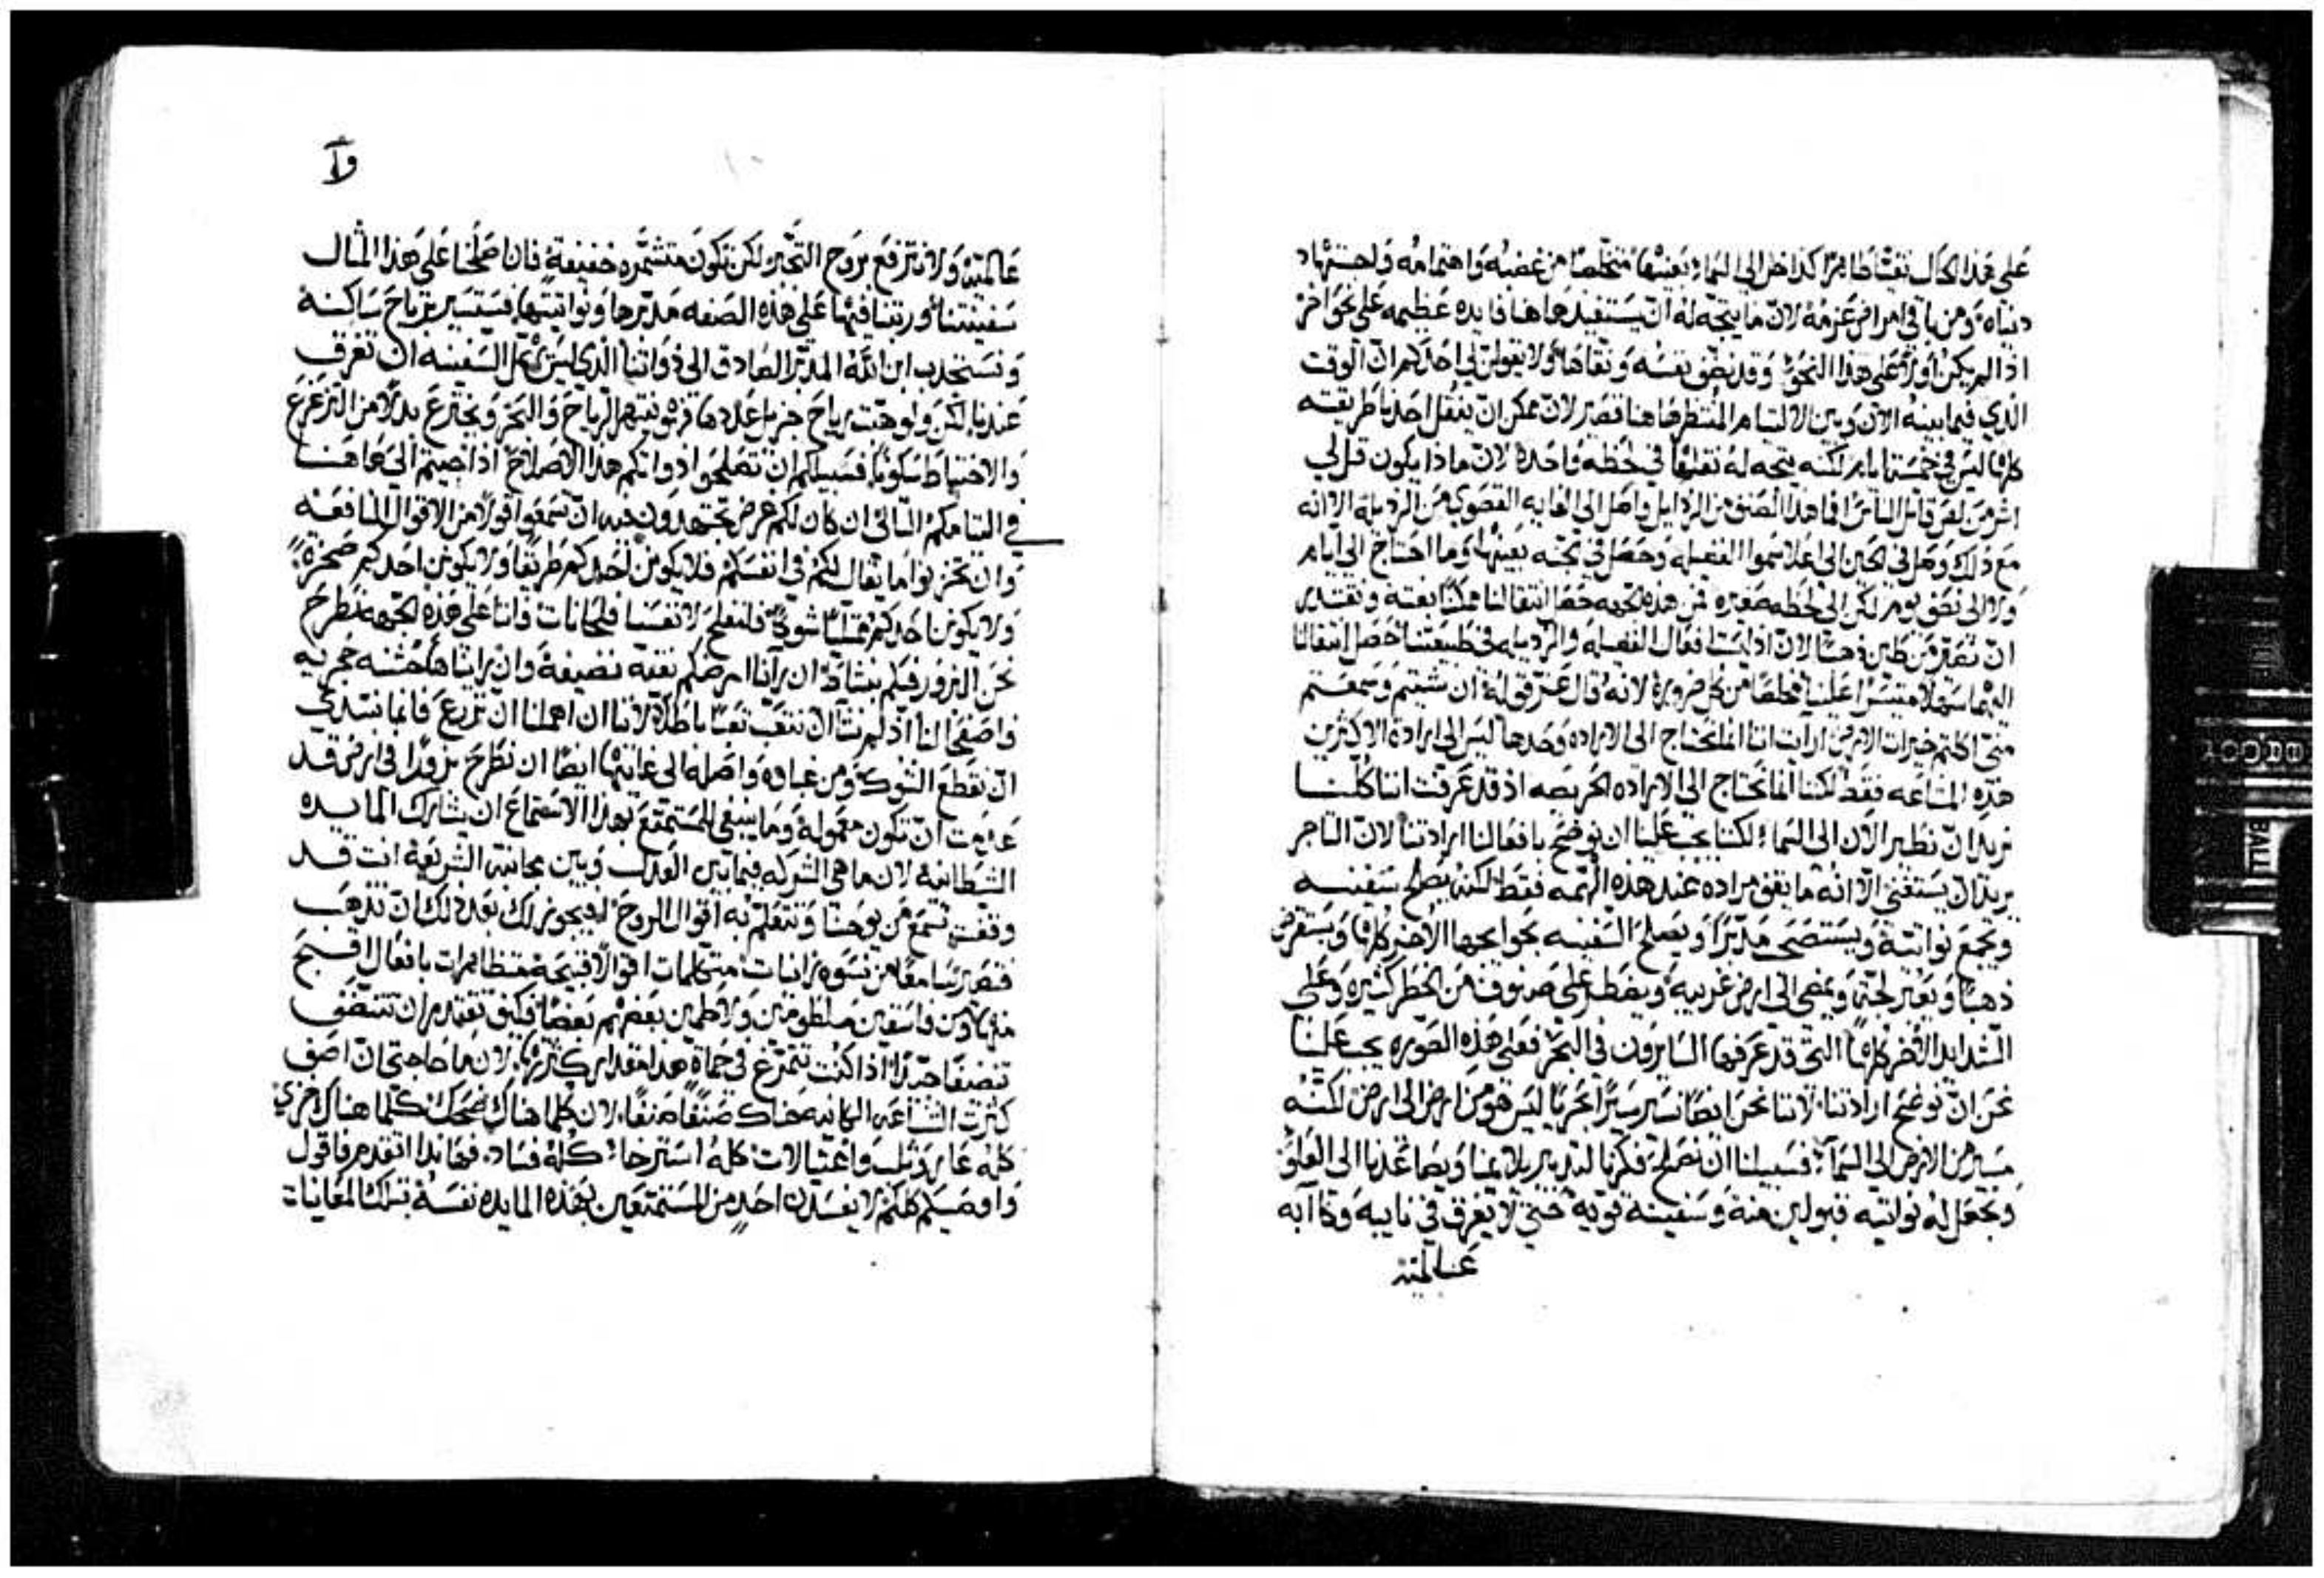 على هذا الحال نقتاظاهرًا كداخل الى السماء بعينها متخلصًا من غضبه واهتمامه ولجتهاد
دنياه ومن باقي امراض عزمه لان ما يتجه له ان يستفيد هاهنا فايده عظيمه على نحو اخر
اذا لم يكن اولًا على هذا النحو وقد نظف نفسه ونقاها ولا يقولن لي احدكم ان الوقت
الذي فيما بينه الان وبين الالتيام المنتظر هاهنا قصير لان يمكن ان ينقل احدنا طريقته
كلها ليس في خمسة ايام لكنه يتجه له نقلها في لحظه واحدة لان ماذا يكون قل لي
اشر من لص قاتل الناس اما هذا الصنف من الرذايل واصل الى الغايه القصوى من الرذيله الا انه
مع ذلك وصل في الحين الى اعلا سموا الفضيله وحصل في الجنه بعينها وما احتاج الى ايام
ولا الى نصف يوم لكن الى لحظه صغيره فمن هذه الجهه حصل انتقالنا ممكنًا بغته ونقتدر
ان نصير من طين ذهبًا لان اذ ليست افعال الفضيله والرذيله في طبيعتنا حصل انتقالنا
اليهما سهلا متيسرًا علينا مخلصًا من كل ضرورة لانه قال عز قوله ان شيتم وسمعتم
مني اكلتم خيرات الارض ارايت اننا انما نحتاج الى الاراده وحدها ليس الى ارادة الاكثرين
هذه الشاعه فقط لكننا انما نحتاج الى الاراده الحريصه اذ قد عرفت اننا كلنا
نريد ان نطير الان الى السماء لكننا يجب علينا ان نوضح بافعالنا ارادتنا لان التاجر
يريد ان يستغني الا انه ما يقف مراده عند هذه الهمه فقط لكنه يصلح سفينه
ويجمع نواتية ويستصحب مدبرًا ويصلح السفينه بحوايجها الاخر كلها ويستقرض
ذهبًا ويعبر لجة ويمضي الى ارض غريبه ويضطر على صنوف من الخطر كثيره وعلى
الشدايد الاخر كلها التي قد عرفها السايرون في البحر فعلى هذه الصوره يجب علينا
نحن ان نوضح ارادتنا لاننا نحن ايضًا نسير سيرًا بحريًا ليس هو من ارض الى ارض لكنه
مسير من الارض الى السماء فسبيلنا ان نصلح فكرنا لتدبير يلايمنا ويصاعدنا الى العلو
ونجعل له نواتيه قبولين منه وسفينة قوية حتى لا يغرق في نايبه وكاابه
عالمية
وآ
عالمية ولا نترفع بروح التجبر لكن تكون متشمره خفيفة فان اصلحنا على هذا المثال
سفينتنا ورتبنا فيها على هذه الصفه مدبرها ونواتيتها فسنسير برياح ساكنة
ونستجذب ابن الله المدبر الصادق الى ذواتنا الذي ليس يهمل السفينه ان تغرق
عندنا لكن ولو هبت رياح جزيل عددها فهو ينتهر الرياح والبحر ويخترع بدلًا من التزعزع
والاختباط سكونًا فسبيلكم ان تصلحوا ذواتكم هذا الاصلاح اذا جيتم الى هاهنا
في التيامكم الثاني ان كان لكم غرض تجتهدون فيه ان تسمعوا قولًا من الاقوال النافعه
وان تخزنوا ما يقال لكم في انفسكم فلا يكونن احدكم طريقًا ولا يكونن احدكم صخرة
ولا يكونن احدكم ممتليًا شوكًا فلنفلح لانفسنا فلحانات فاننا على هذه الجهه نطرح
نحن البزور فيكم بنشاط ان راينا ارضكم نقية نضيفة وان رايناها خشنه حجريه
فاصفحوا لنا اذ لم نشا ان نتعب تعبًا باطلًا لاننا ان اهملنا ان نزرع فانما نبتدي
ان نقطع الشوك ومن غباوه واصله الى غايتها ايضًا ان نطرح بزورًا في ارض قد
عدمت ان تكون معموله وما ينبغي للمستمتع بهذا الاستماع ان يشارك المايده
الشيطانية لان ما هي الشركه فيما بين العدل وبين مجانبة الشريعة انت قد
وقفت تسمع من يوحنا وتتعلم به اقوال الروح افيجوز لك بعد ذلك ان تذهب
فتصير سامعًا من نسوه زانيات متكلمات اقوالًا قبيحة متظاهرات بافعال اقبح
منها ومن فاسقين ملطومين ولاطمين بعضهم بعضًا فكيف تقتدر ان تتنضف
تنضفًا جيدًا اذا كنت تتمرغ في حماة هذا مقدار كثرتها لان ما حاجتي ان اصف
كثرت الشناعه الكاينه هناك صنفًا صنفًا لان كلما هناك ضحك كلما هناك خزي
كله عار وثلب واغتيالات كله استرخاء كله فساد فهانذا اتقدم فاقول
واوصيكم كلكم لا يفسدن احد من المستمتعين بهذه المايده نفسه بتلك المعاينات